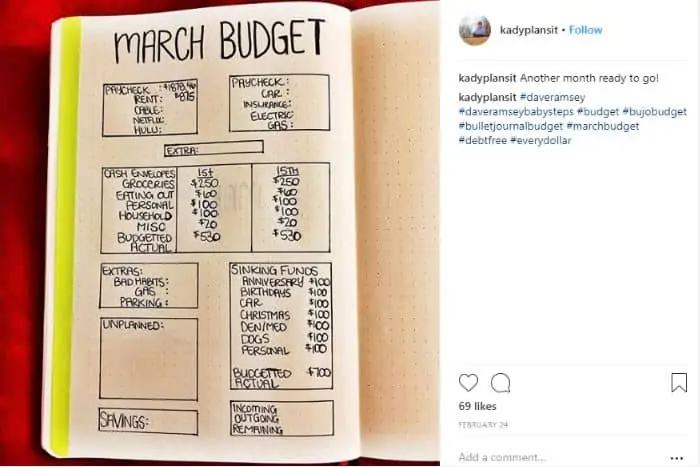 MARCH BUDGET
PAYCHECK : $1878.46
RENT: $875
CABLE:
NETFLIX:
HULU:
PAYCHECK :
CAR :
INSURANCE:
ELECTRIC:
GAS:
EXTRA:
CASH ENVELOPES 1st 15TH
GROCERIES $250 $250
EATING OUT $60 $60
PERSONAL $100 $100
HOUSEHOLD $100 $100
MISC $20 $20
BUDGETTED $530 $530
ACTUAL
EXTRAS:
BAD HABITS:
GAS :
PARKING :
UNPLANNED:
SAVINGS:
SINKING FUNDS
ANNIVERSARY $100
BIRTHDAYS $100
CAR $100
CHRISTMAS $100
DEN/MED $100
DOGS $100
PERSONAL $100
BUDGETTED $700
ACTUAL
INCOMING
OUTGOING
REMAINING
kadyplansit • Follow
kadyplansit Another month ready to go!
kadyplansit #daveramsey
#daveramseybabysteps #budget #bujobudget
#bulletjournalbudget #marchbudget
#debtfree #everydollar
69 likes
FEBRUARY 24
Add a comment...